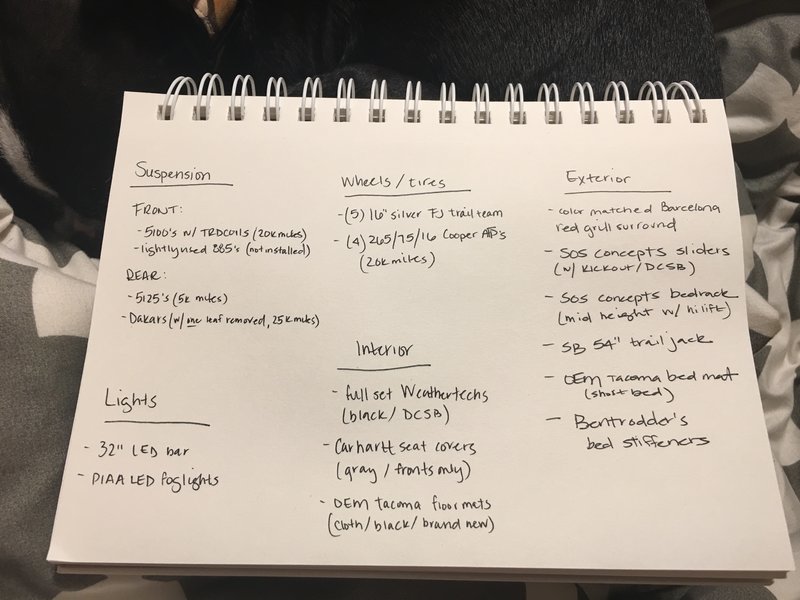 Suspension
FRONT:
- 5100's w/ TRD coils (20k miles)
- lightly used 885's (not installed)
REAR:
- 5125's (5k miles)
- Dakars (w/ one leaf removed, 25k miles)
Lights
- 32" LED bar
- PIAA LED foglights
Wheels/tires
- (5) 16" silver FJ trail team
- (4) 265/75/16 Cooper
(20k miles)
Interior
- full set Weathertechs
(black/ DCSB)
- Carhartt seat covers
(gray / fronts only)
- OEM tacoma floor mats
(cloth/black/brand new)
Exterior
- color matched Barcelona
red grill surround
- SOS concepts sliders
(w/ kickout/DCSB)
- SOS concepts bedrack
(mid height w/ hilift)
- SB 54" trail jack
- OEM Tacoma bed mat
(short bed)
- Bentrodder's
bed stiffeners